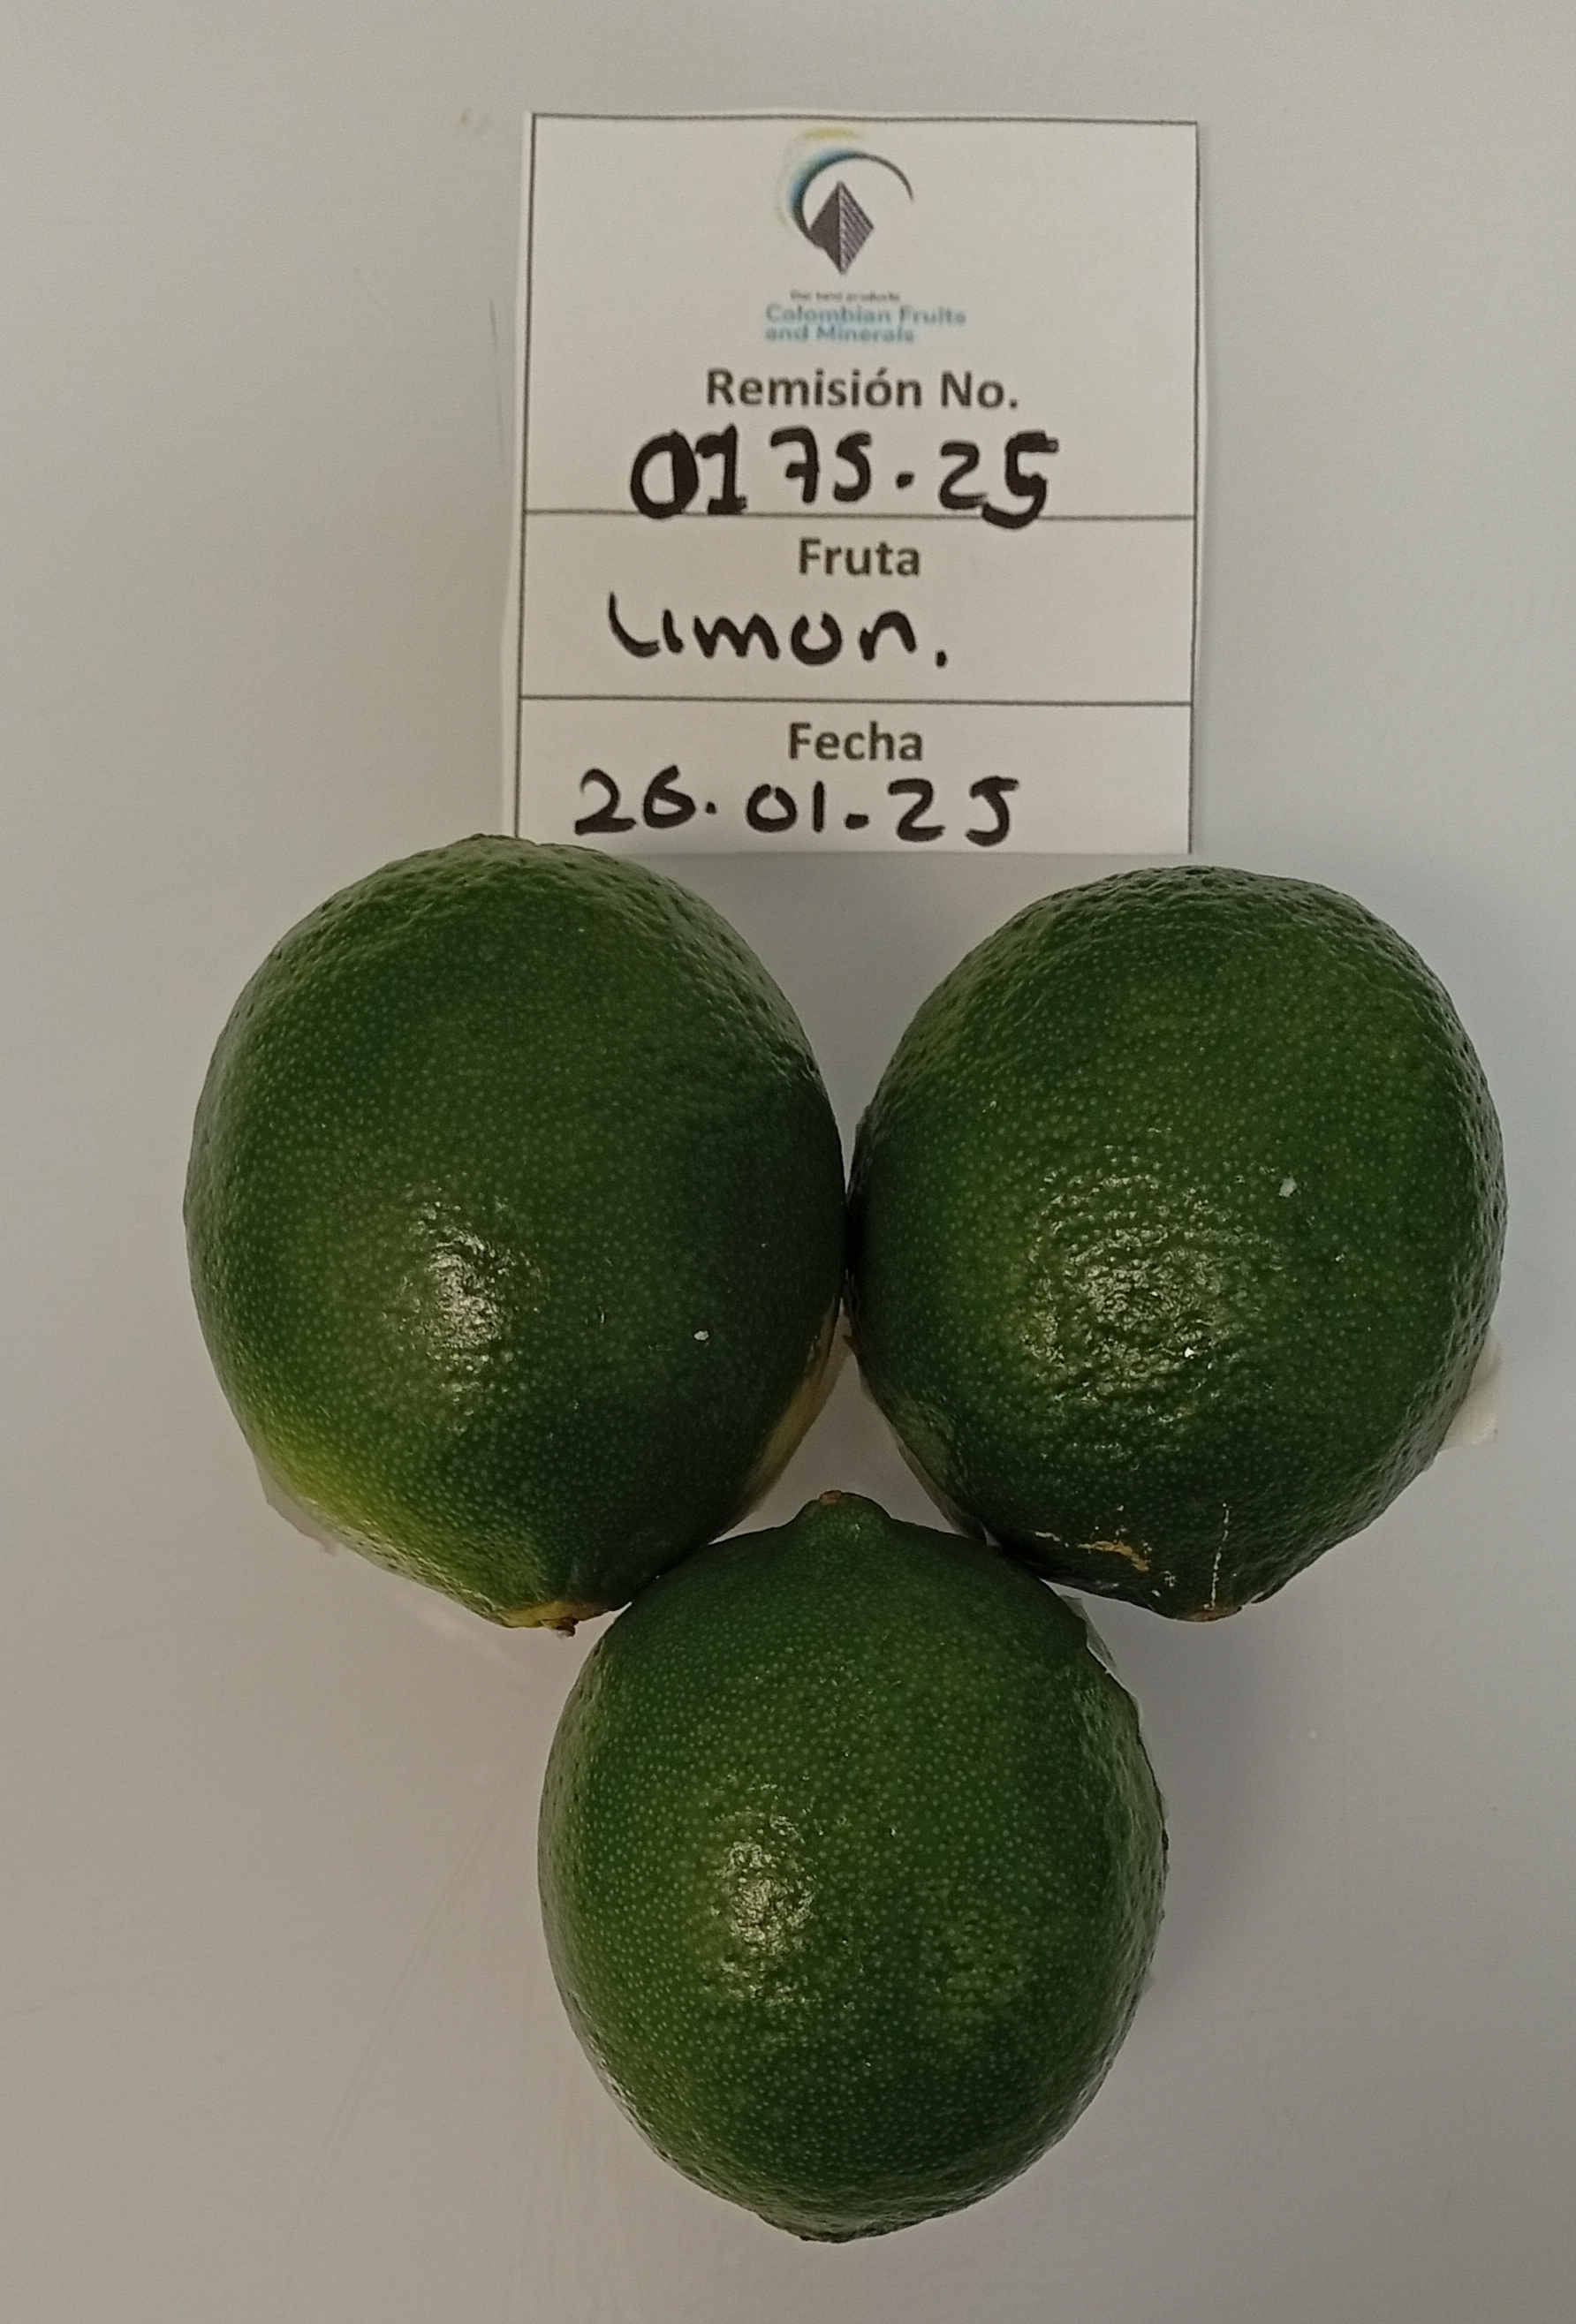 Our best products
Colombian Fruits
and Minerals
Remisión No.
0175-25
Fruta
Limon.
Fecha
26.01-25